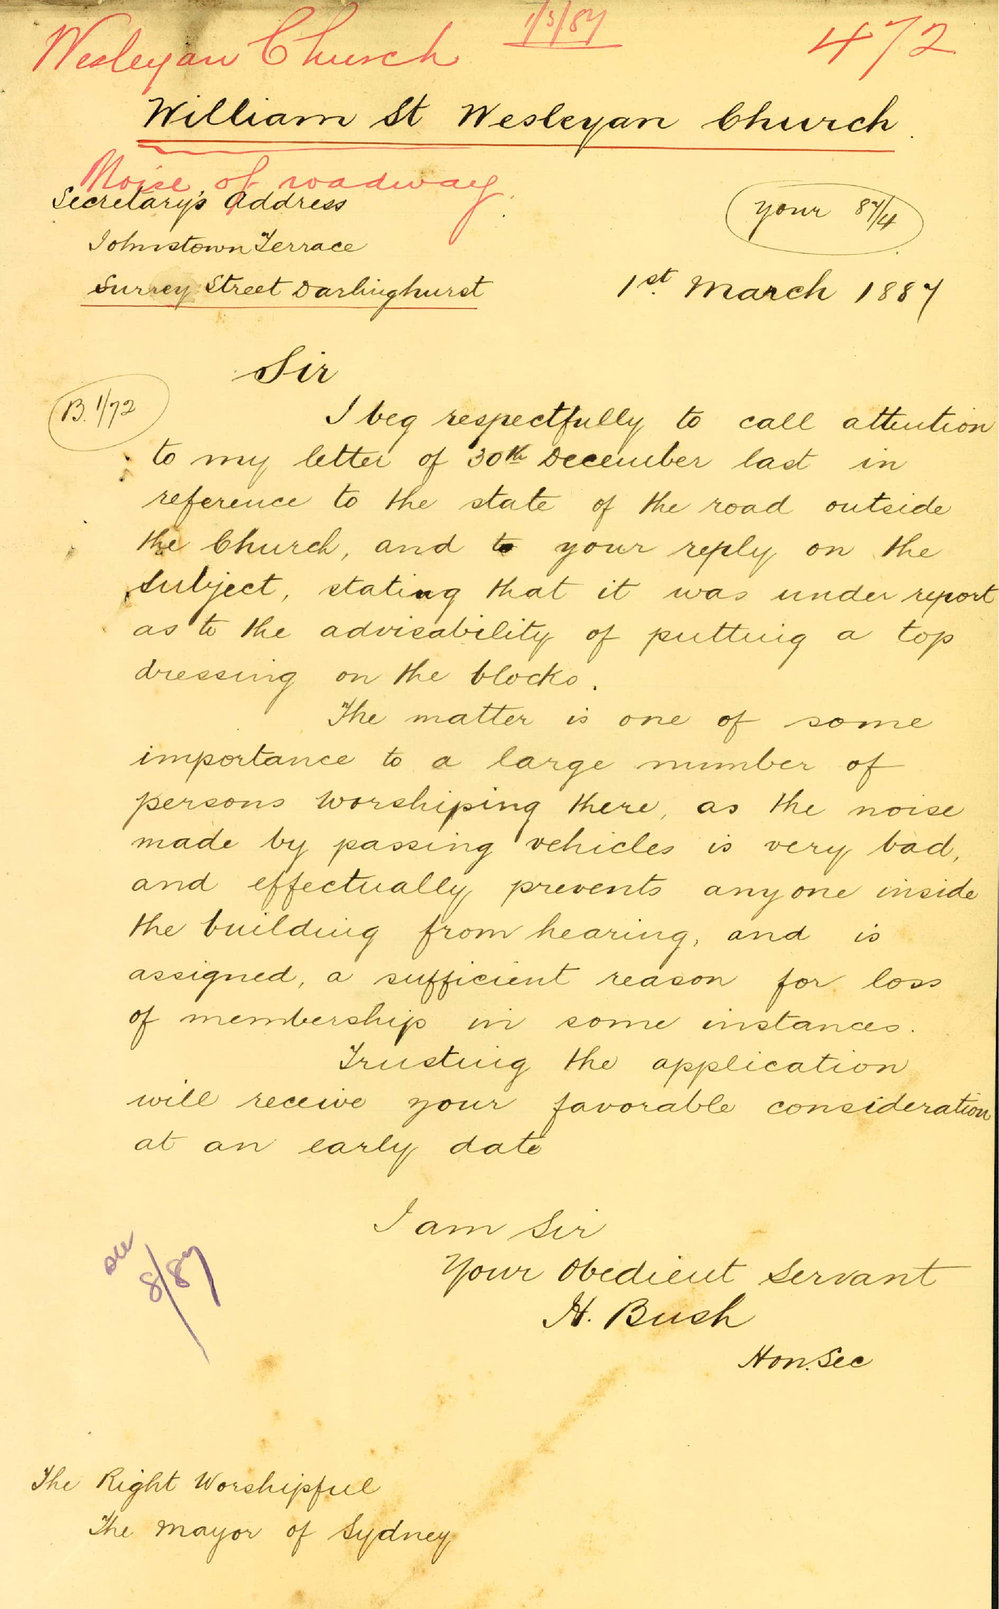 Wesleyan Church
1/3/87
472
William St Wesleyan Church.
Noise of roadway.
Secretary's Address
Johnstown Terrace
Surrey Street Darlinghurst
your 87/4
1st. March 1887
Sir
B. 1/72
I beg respectfully to call attention
to my letter of 30th December last in
reference to the state of the road outside
the Church, and to your reply on the
subject, stating that it was under report
as to the advisability of putting a top
dressing on the blocks.
The matter is one of some
importance to a large number of
persons worshiping there, as the noise
made by passing vehicles is very bad,
and effectually prevents anyone inside
the building from hearing, and is
assigned, a sufficient reason for loss
of membership in some instances.
Trusting the application
will receive your favorable consideration
at an early date
I am Sir
Your Obedient Servant
H. Bush
Hon. Sec
see
8/87
The Right Worshipful
The Mayor of Sydney